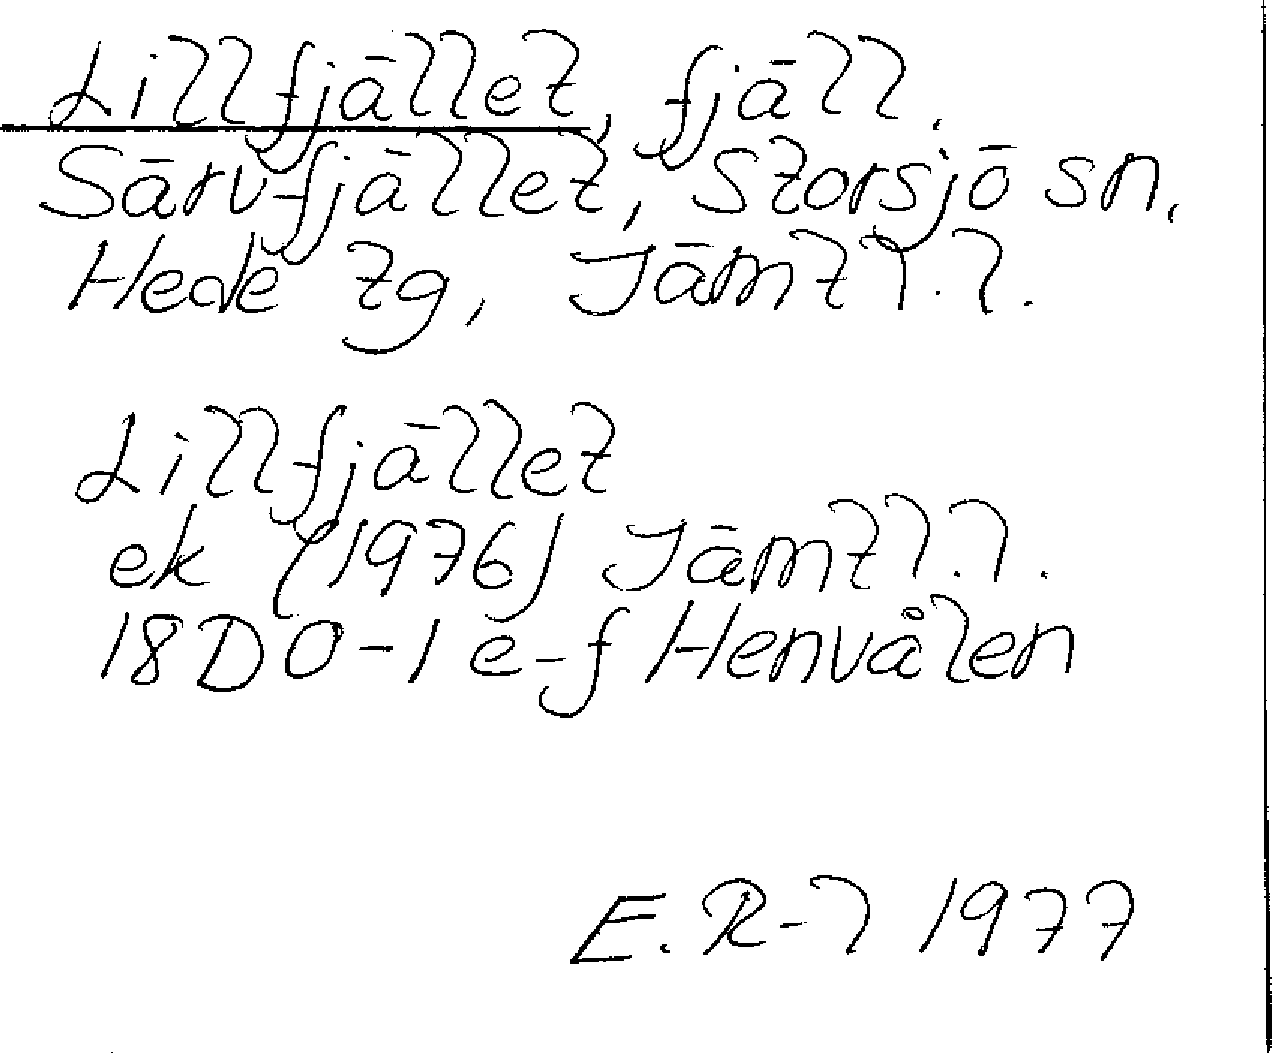 Lillfjället, fjäll,
Särvfjället, Storsjö sn,
Hede tg, Jämtl.l.
Lillfjället
ek (1976) Jämtl.l.
18D 0-1 e-f Henvålen
E. R-l 1977